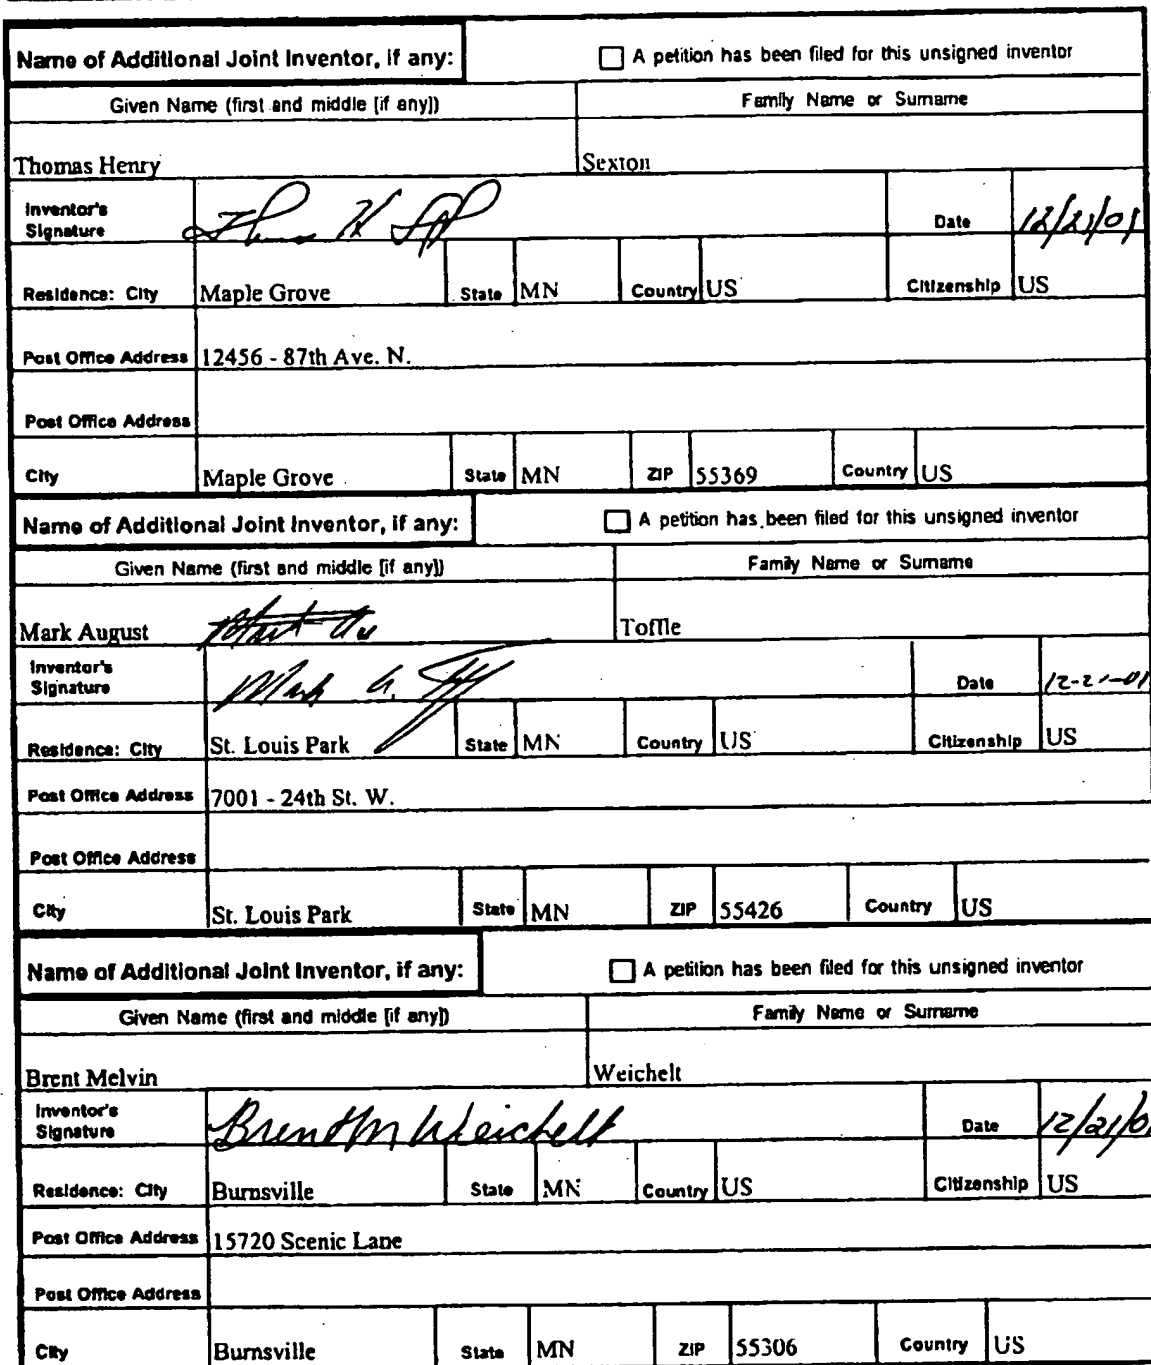 Name of Additional Joint Inventor, if any: A petition has been filed for this unsigned inventor
Given Name (first and middle [if any]) Family Name or Surname
Thomas Henry Sexton
Inventor's Signature Date 12/21/01
Residence: City Maple Grove State MN Country US Citizenship US
Post Office Address 12456 - 87th Ave. N.
Post Office Address
City Maple Grove State MN ZIP 55369 Country US
Name of Additional Joint Inventor, if any: A petition has been filed for this unsigned inventor
Given Name (first and middle [if any]) Family Name or Surname
Mark August Toffle
Inventor's Signature Mark A. Date 12-21-01
Residence: City St. Louis Park State MN Country US Citizenship US
Post Office Address 7001 - 24th St. W.
Post Office Address
City St. Louis Park State MN ZIP 55426 Country US
Name of Additional Joint Inventor, if any: A petition has been filed for this unsigned inventor
Given Name (first and middle [if any]) Family Name or Surname
Brent Melvin Weichelt
Inventor's Signature Brent M Weichelt Date 12/21/0
Residence: City Burnsville State MN Country US Citizenship US
Post Office Address 15720 Scenic Lane
Post Office Address
City Burnsville State MN ZIP 55306 Country US